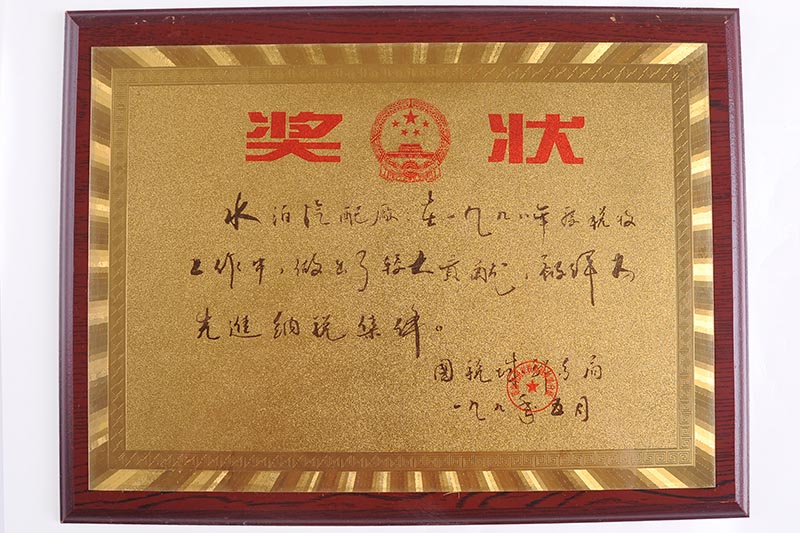 奖状
水泊汽配厂：在一九九八年度税收
工作中，做出了较大贡献，被评为
先进纳税集体。
国税城郊分局
一九九 年五月